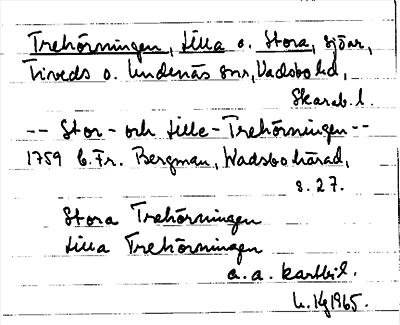 Trehörningen, Lilla o. Stora, sjöar,
Tiveds o. Undenäs snr, Vadsbo hd,
Skarab. l.
-- Stor- och Lille-Trehörningen--
1759 C. Fr. Bergman, Wadsbo härad,
s. 27.
Stora Trehörningen
Lilla Trehörningen
a. a. kartbil.
1965.